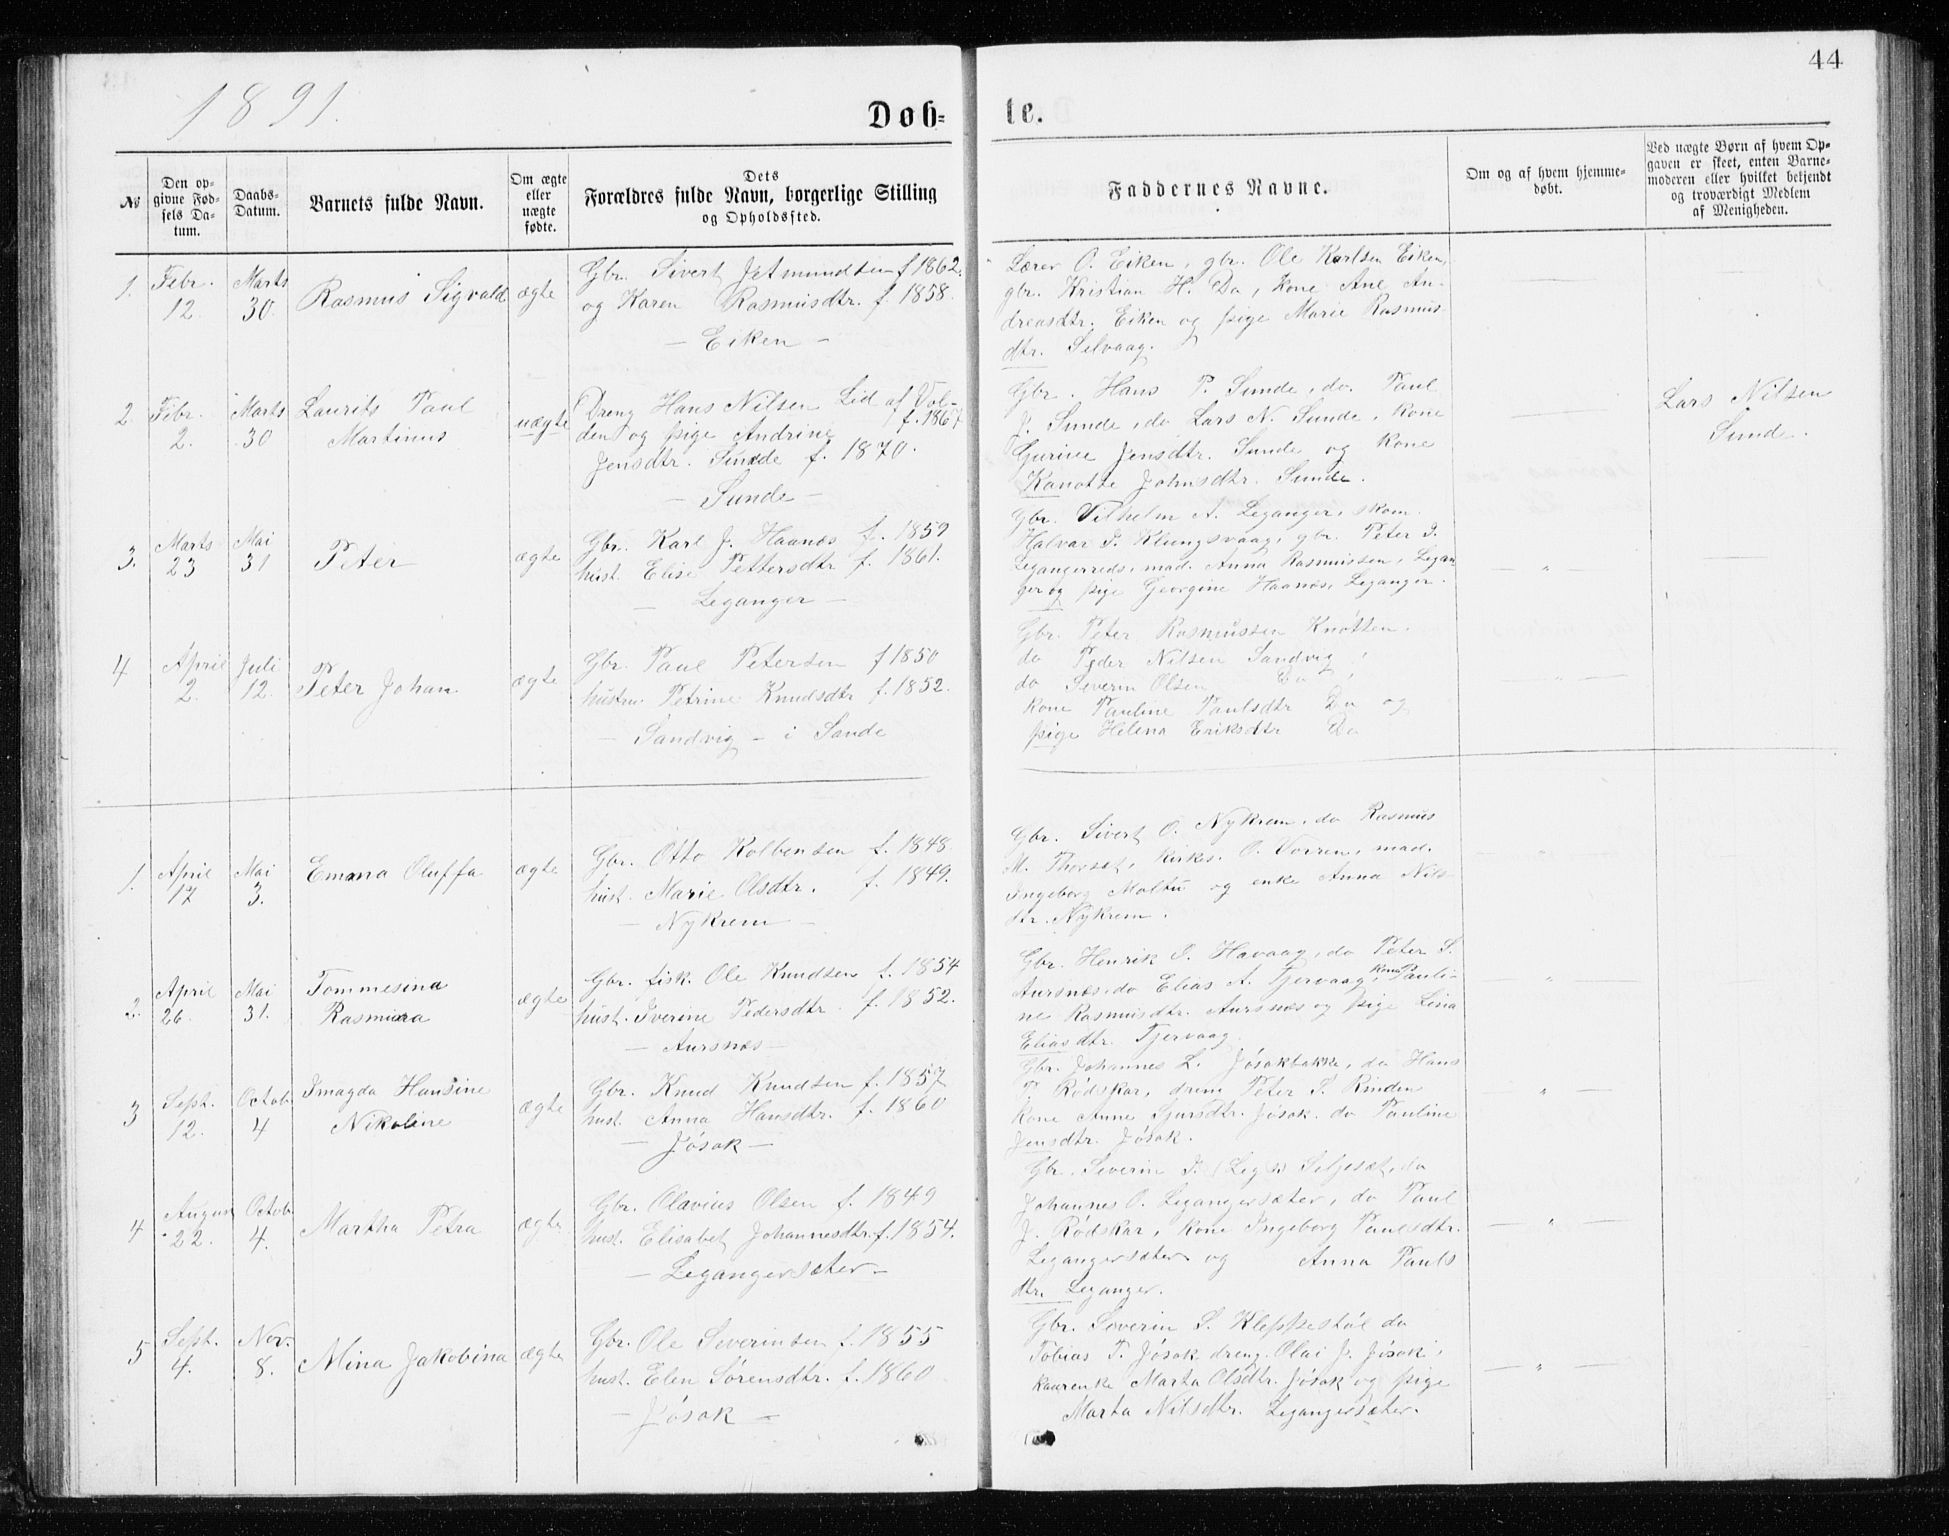 44
1891.
Døb-
te.
№
Den op-
givne Fød-
sels Da-
tum.
Daabs-
Datum.
Barnets fulde Navn.
Om ægte
eller
uægte
fødte.
Dets
Forældres fulde Navn, borgerlige Stilling
og Opholdssted.
Faddernes Navne.
Om og af hvem hjemme-
døbt.
Ved uægte Børn af hvem Op-
gaven er skeet, enten Barne-
moderen eller hvilket bekjendt
og troværdigt Medlem
af Menigheden.
1.
Febr.
12.
Marts
30.
Rasmus Sigvald
ægte
Gbr. Sivert J. Amundsen f 1862.
og Karen Rasmusdtr. f. 1858.
- Eiken -
Lærer O. Eiken, gbr. Ole Karlsen Eiken,
gbr. Kristian H. Do, kone Ane An-
dreasdtr. Eiken og pige Marie Rasmus
dtr. Selvaag.
2.
Febr.
2.
Marts
30
Laurits Paul
Martinus
uægte
Dreng Hans Nilsen Lid af Vol-
den og pige Andrine f. 1867
Jensdtr. Sunde f. 1870.
- Sunde -
Gbr. Hans P. Sunde, do. Paul
J. Sunde, do Lars N. Sunde, kone
Gurine Jensdtr. Sunde og kone
Kanotte Johnsdtr. Sunde.
Lars Nilsen
Sunde.
3.
Marts
23
Mai
31
Peter
ægte
Gbr. Karl J. Haanæs f. 1859
hust. Elise Pettersdtr f. 1861.
- Leganger -
Gbr. Vilhelm A. Leganger, skom.
Halvar P. Klungsvaag, gbr. Peter I.
Legangerreds, mad. Anna Rasmussen, Legan
ger og pige Georgine Haanæs, Leganger.
— „ —
4
April
2.
Juli
12.
Peter Johan
ægte
Gbr. Paul Petersen f 1850
hustru Petrine Knudsdtr f. 1852.
- Sandvig - i Sande
Gbr. Peter Rasmussen Knotten.
do Peder Nilsen Sandvig,
do Severin Olsen Do,
kone Pauline Paulsdtr Do og
pige Helena Eriksdtr Do
— „ —
1.
April
17
Mai
3.
Emma Oluffa
ægte
Gbr. Otto Kolbensen f. 1848.
hust. Marie Olsdtr. f. 1849.
- Nykrem -
Gbr. Sivert O. Nykrem, do Rasmus
M. Thorset, kirkes. O. Vorren, mad.
Ingeborg Moltu og enke Anna Nils-
dtr. Nykrem.
— „ —
2.
April
26.
Mai
31.
Tommesina
Rasmina
ægte
Gbr. fisk. Ole Knudsen f. 1854
hust. Iverine Pedersdtr. f. 1852.
- Aursnæs -
Gbr. Henrik O. Havaag, do Peter S.
Aursnæs, do Elias A. Tjervaag, kone Pauli-
ne Rasmusdtr. Aursnæs og pige Lina
Eliasdtr. Tjervaag.
— „ —
3
Sept.
12.
Octob
4
Smagda Hansine
Nikoline
ægte
Gbr. Knud Knudsen f. 1857
hust. Anna Hansdtr. f. 1860
- Jøsok -
Gbr. Johannes L. Jøsokbakke, do Hans
P. Rødskar, dreng Peter P. Rinden
kone Anne Sjursdtr. Jøsok. do Pauline
Jensdtr. Jøsok.
— „ —
4
August
22.
Octob
4.
Martha Petra
ægte
Gbr. Olavius Olsen f. 1849
hust. Elisabet Johannesdtr. f. 1854.
- Legangersæter -
Gbr. Severin P. Seljesæt, do
Johannes O. Legangersæter, do Paul
J. Rødskar, kone Ingeborg Paulsdtr.
Legangersæter og Anna Pauls
dtr. Leganger.
— „ —
5
Sept.
4.
Nov.
8.
Mina Jakobina
ægte
Gbr. Ole Severinsen f. 1855
hust. Elen Sørensdtr. f. 1860
- Jøsok -
Gbr. Severin S. Kleppestøl do
Tobias P. Jøsok dreng Olai J. Jøsok,
kaarenke Marta Olsdtr. Jøsok og pige
Marta Nilsdtr. Legangersæter.
— „ —